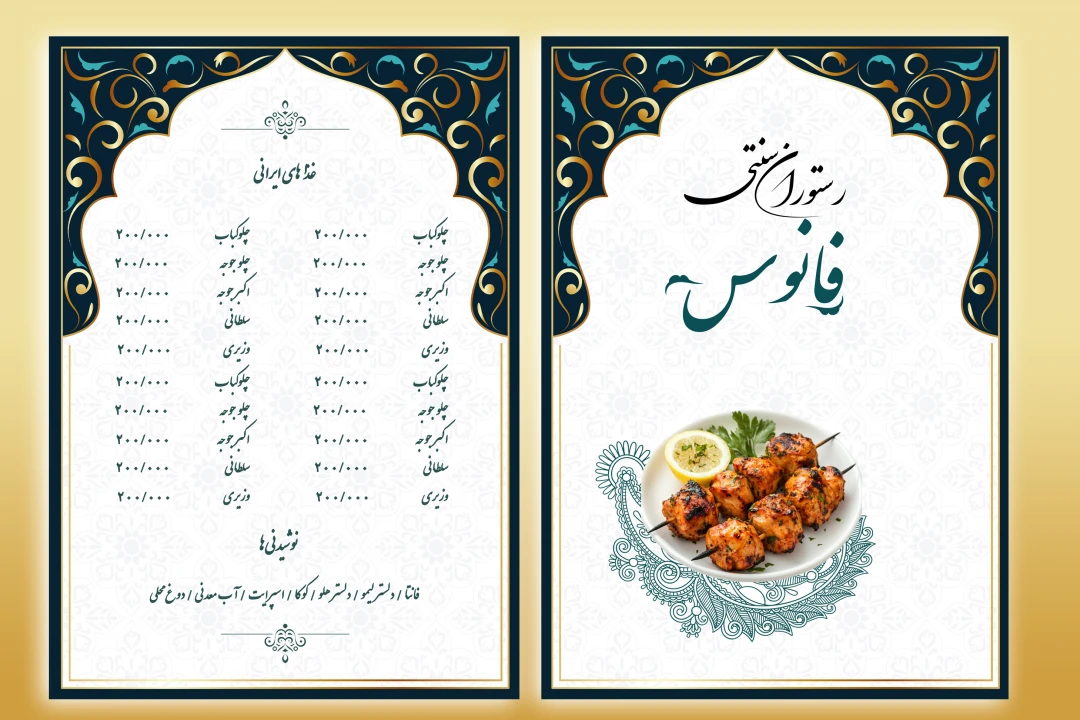 رستوران سنتی
فانوس
غذا های ایرانی
چلوکباب ۲۰۰/۰۰۰ چلوکباب ۲۰۰/۰۰۰
چلو جوجه ۲۰۰/۰۰۰ چلو جوجه ۲۰۰/۰۰۰
اکبر جوجه ۲۰۰/۰۰۰ اکبر جوجه ۲۰۰/۰۰۰
سلطانی ۲۰۰/۰۰۰ سلطانی ۲۰۰/۰۰۰
وزیری ۲۰۰/۰۰۰ وزیری ۲۰۰/۰۰۰
چلوکباب ۲۰۰/۰۰۰ چلوکباب ۲۰۰/۰۰۰
چلو جوجه ۲۰۰/۰۰۰ چلو جوجه ۲۰۰/۰۰۰
اکبر جوجه ۲۰۰/۰۰۰ اکبر جوجه ۲۰۰/۰۰۰
سلطانی ۲۰۰/۰۰۰ سلطانی ۲۰۰/۰۰۰
وزیری ۲۰۰/۰۰۰ وزیری ۲۰۰/۰۰۰
نوشیدنی ها
فانتا / دلستر لیمو / دلستر هلو / کوکا / اسپرایت / آب معدنی / دوغ محلی